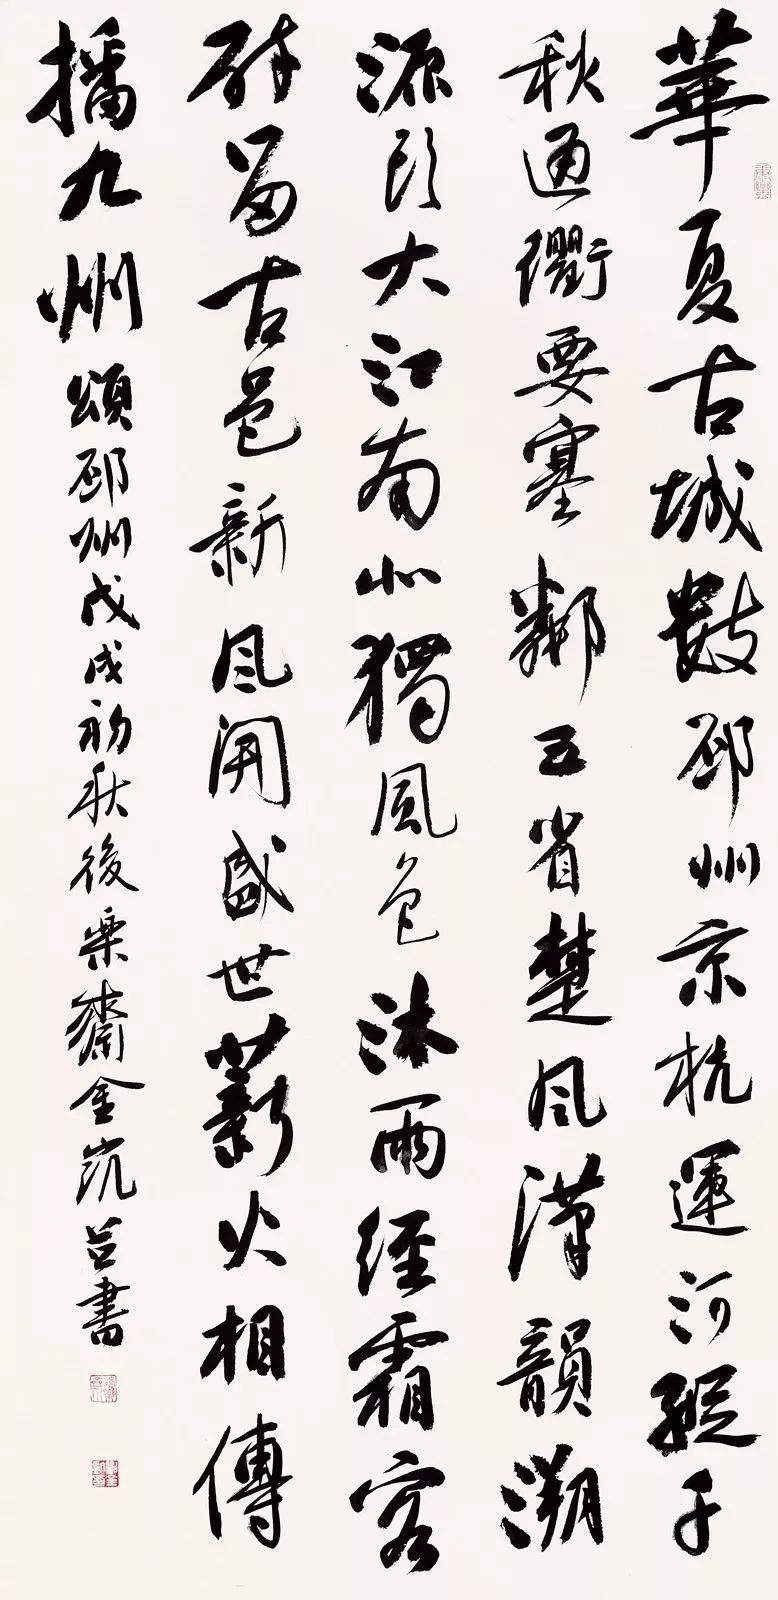 華夏古城數邳州京杭運河縱千
秋通衢要塞鄰五省楚风漢韻溯
源头大江南北獨風色沐雨經霜客
醉留古邑新风開盛世薪火相傳
播九州頌邳州戊戌初秋後樂齋金凯書